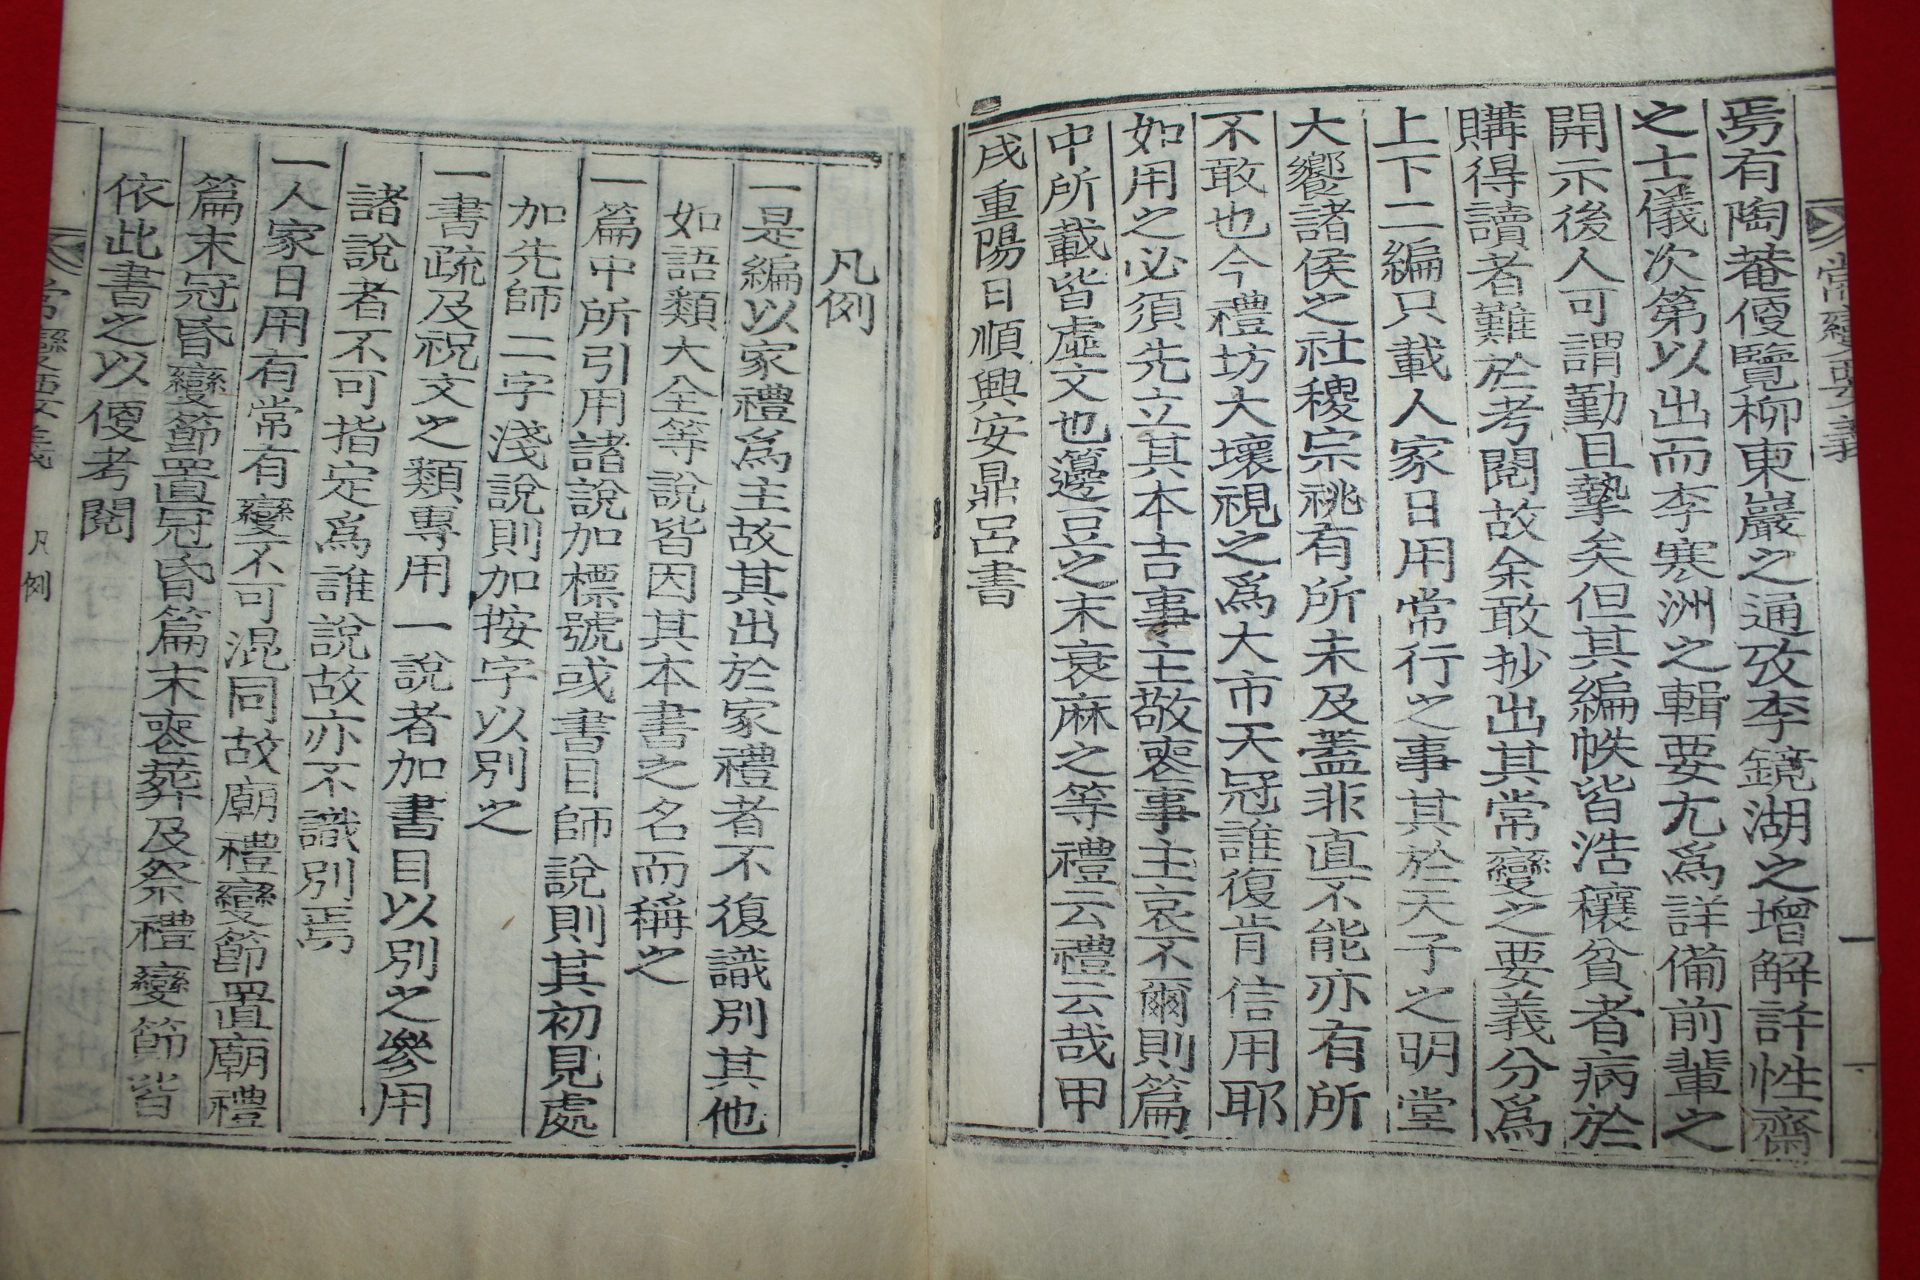 常變要義
一
焉有陶菴便覽柳東巖之通攷李鏡湖之增解許性齋
之士儀次第以出而李寒洲之輯要尤爲詳備前輩之
開示後人可謂勤且摯矣但其編帙皆浩穰貧者病於
購得讀者難於考閱故余敢抄出其常變之要義分爲
上下二編只載人家日用常行之事其於天子之明堂
大饗諸侯之社稷宗祧有所未及蓋非直不能亦有所
不敢也今禮坊大壞視之爲大市天冠誰復肯信用耶
如用之必須先立其本吉事主敬喪事主哀不爾則篇
中所載皆虛文也籩豆之末衰麻之等禮云禮云哉甲
戌重陽日順興安鼎呂書
凡例
一是編以家禮爲主故其出於家禮者不復識別其他
如語類大全等說皆因其本書之名而稱之
一篇中所引用諸說加標號或書目師說則其初見處
加先師二字淺說則加按字以別之
一書疏及祝文之類專用一說者加書目以別之參用
諸說者不可指定爲誰說故亦不識別焉
一人家日用有常有變不可混同故廟禮變節置廟禮
篇末冠昏變節置冠昏篇末喪葬及祭禮變節皆
依此書之以便考閱
常變要義
凡例
一